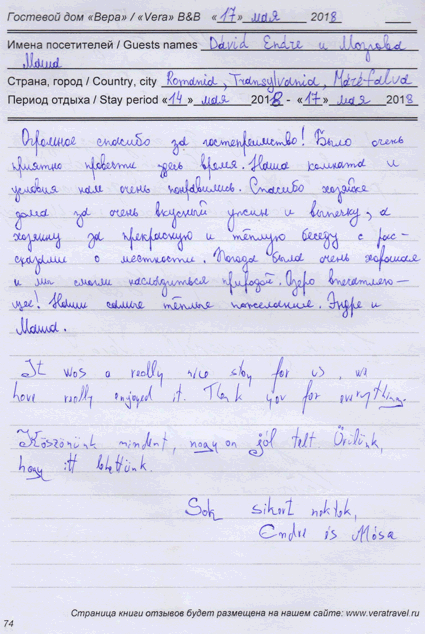 Гостевой дом «Вера» / «Vera» B&B «17» мая 2018
Имена посетителей / Guests names David Endre и Мозгова
Маша
Страна, город / Country, city Romania, Transylvania, Máréfalva
Период отдыха / Stay period «14» мая 2018 - «17» мая 2018
Огромное спасибо за гостеприимство! Было очень
приятно провести здесь время. Наша комната и
условия нам очень понравились. Спасибо хозяйке
дома за очень вкусный ужин и выпечку, а
хозяину за прекрасную и тёплую беседу с рас-
сказами о местности. Погода была очень хорошая
и мы смогли насладиться природой. Озеро впечатляю-
щее! Наши самые тёплые пожелания. Эндре и
Маша.
It was a really nice stay for us, we
have really enjoyed it. Thank you for everything.
Köszönünk mindent, nagyon jól telt. Örülünk,
hogy itt lehettünk.
Sok sikert nektek,
Endre és Mása
Страница книги отзывов будет размещена на нашем сайте: www.veratravel.ru
74